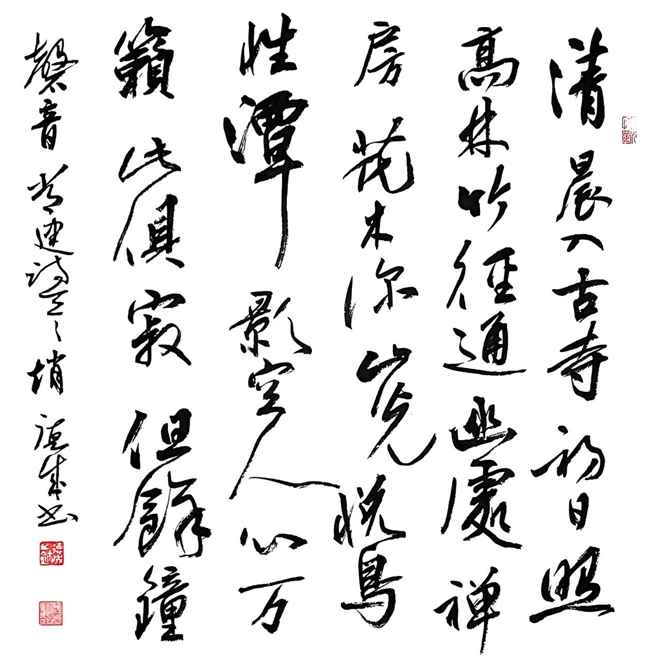 清晨入古寺初日照
高林竹径通幽處禅
房花木深山光悦鳥
性潭影空人心万
籟此俱寂但餘鐘
磬音 常建诗 书